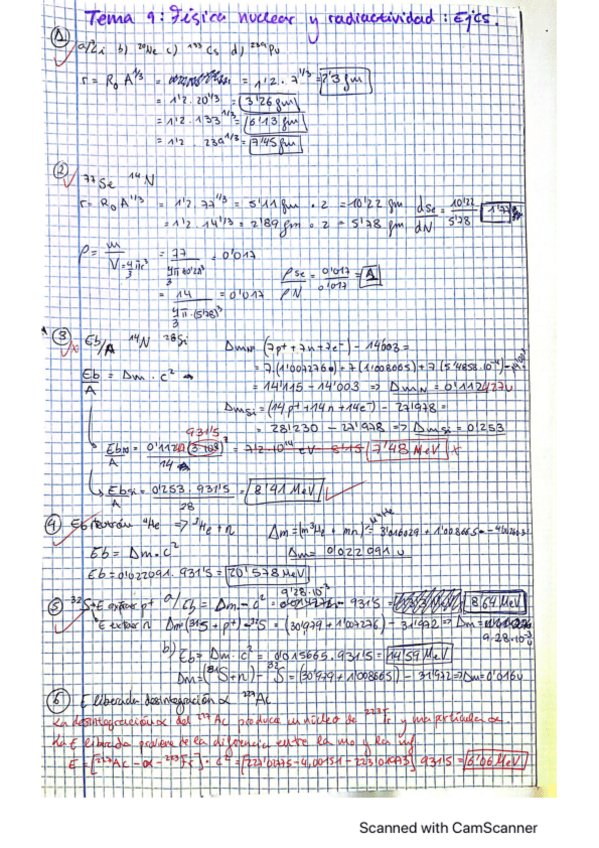 Tema 9: Física nuclear y radiactividad: Ejcs.
1 a/ ⁷Li b) ²⁰Ne c) ¹³³Cs d) ²³⁹Pu
r = R₀ A^1/3 = 1'2 · 7^1/3 = 2'3 fm
= 1'2 · 20^1/3 = 3'26 fm
= 1'2 · 133^1/3 = 6'13 fm
= 1'2 · 239^1/3 = 7'45 fm
2 ⁷⁷Se ¹⁴N
r = R₀ A^1/3 = 1'2 · 77^1/3 = 5'11 fm · 2 = 10'22 fm dSe/dN = 10'22/5'78 = 1'77
= 1'2 · 14^1/3 = 2'89 fm · 2 = 5'78 fm
ρ = m / V = 4/3 πr³ = 77 / 4/3 π · 10'22³ = 0'017 ρSe / ρN = 0'017 / 0'017 = 1
= 14 / 4/3 π · (5'78)³ = 0'017
3 Eb/A ¹⁴N ²⁸Si Δm_N (7p⁺ + 7n + 7e⁻) - 14'003 =
= 7 · (1'007276) + 7 (1'008665) + 7 (5'4858 · 10⁻⁴)
Eb/A = Δm · c² = 14'115 - 14'003 ⇒ Δm_N = 0'112427u
Δm_Si = (14p⁺ + 14n + 14e⁻) - 27'978 =
= 28'230 - 27'978 ⇒ Δm_Si = 0'253
931'5
Eb_N/A = 0'1124 (3·10⁸)² / 14 = 7'2 · 10⁻¹⁴ eV 8'15 7'48 MeV x
Eb_Si/A = 0'253 · 931'5 / 28 = 8'41 MeV
4 Eb neutrón ⁴He ⇒ ³He + n Δm = (m³He + mn) - ⁴He = 3'016029 + 1'008665 - 4'002603
Eb = Δm · c² Δm = 0'022091 u
Eb = 0'022091 · 931'5 = 20'578 MeV
5 ³²S E extraer p⁺ a/ Eb = Δm · c² = 9'28·10⁻³ · 931'5 = 8'64 MeV
E extraer n Δm (³¹S + p⁺) - ³²S = (30'979 + 1'007276) - 31'972 ⇒ Δm = 9'28·10⁻³ u
b) Eb = Δm · c² = 0'015665 · 931'5 = 14'59 MeV
Δm = (³¹S + n) - ³²S = (30'979 + 1'008665) - 31'972 ⇒ Δm = 0'016u
6 E liberada desintegración α ²²⁷Ac
La desintegración α del ²²⁷Ac produce un núcleo de ²²³Fr y una partícula α.
La E liberada proviene de la diferencia entre la mo y la mf
E = [²²⁷Ac - α - ²²³Fr] · c² = [227'0275 - 4,00151 - 223'01973] 931'5 = 6'06 MeV
Scanned with CamScanner